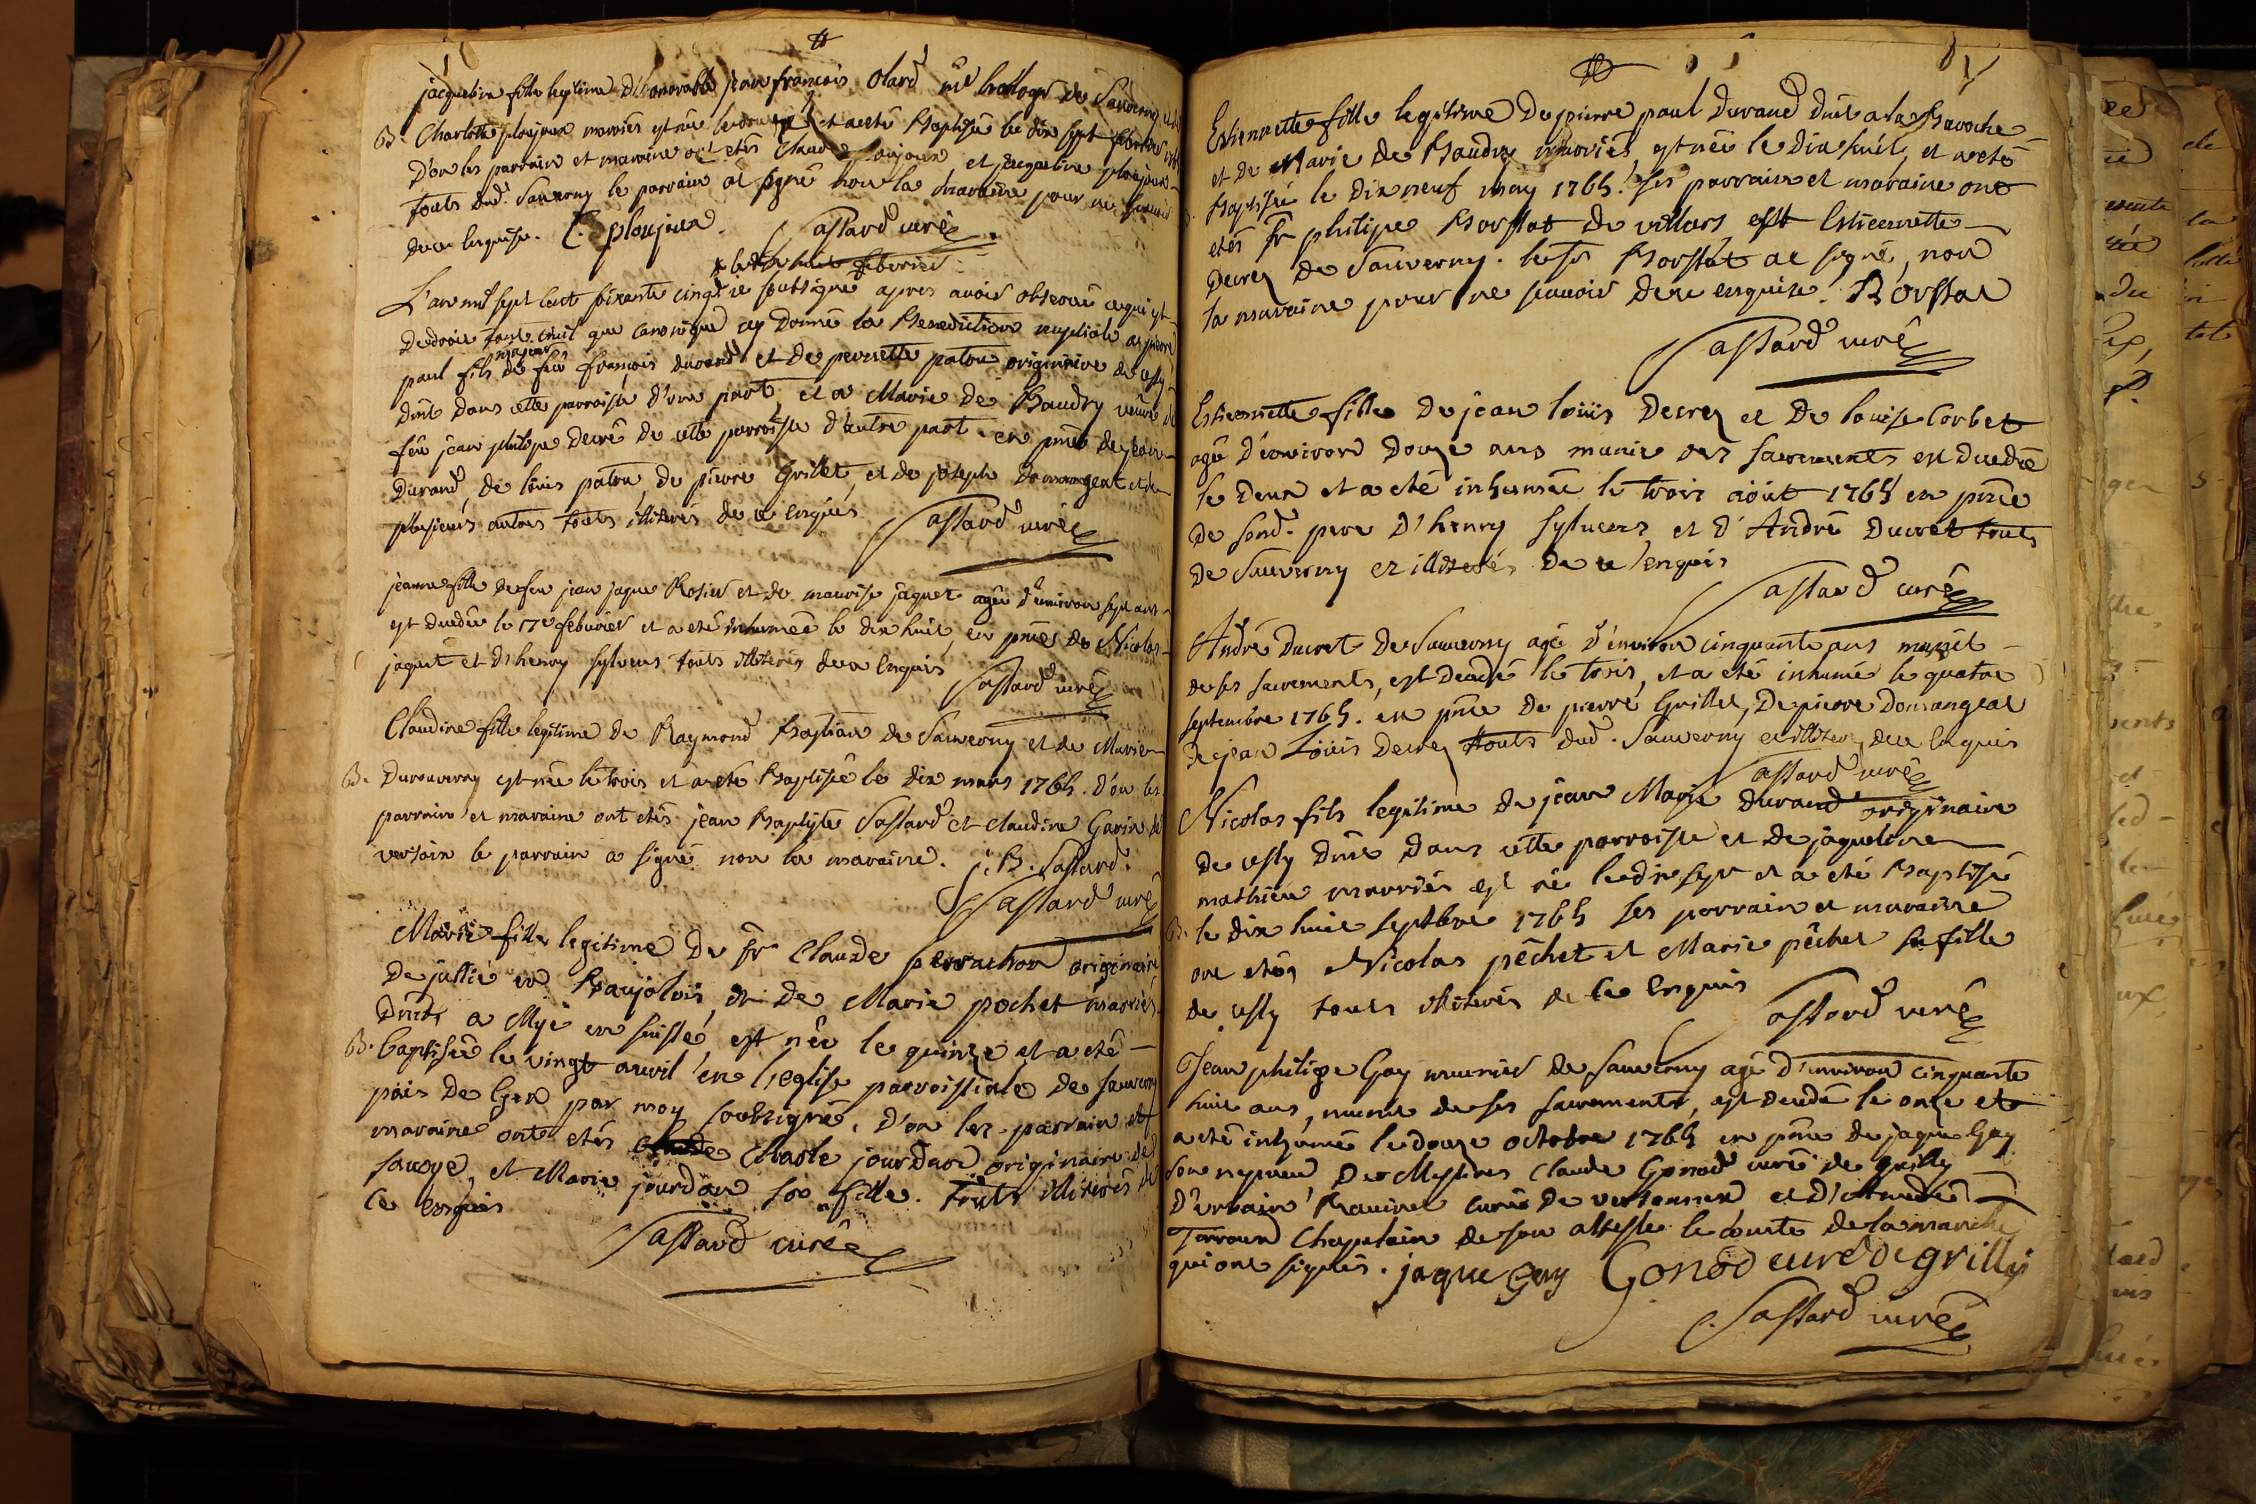 jacqueline fille legitime d'honorable jean françois olard me horloger de Sauverny et de
B. Charlotte ploujoux mariés est née le douze et a eté Baptisée le dix sept febvrier
D'on les parrain et maraine ont etés Claude ploujoux et jacqueline ploujoux
touts dud. Sauverny le parrain at signé non la maraine pour ne scavoir
de ce enquise. C. ploujoux. Castard curé
le dix huit febvrier
L'an mil sept cent soixante cinq je soubsigné apres avoir observé ce qui est
de droit tant civil que canonique ay donné la Benediction nuptiale a pierre
paul fils majeur de feu françois durand et de pernette paton originaire de cessy
dmt dans cette parroisse d'une part, et a Marie de Baudry veuve de
feu jean philipe Decré de cette parroisse d'autre part en pnce de jean
Durand, de louis paton, de pierre Grillet et de joseph Domangeat et de
plusieurs autres touts illiterés de ce enquis Castard curé
jeanne fille de feu jean jaque Rosier et de maurise jaquet agée d'environ sept ans
est decedée le 17e febvrier et a eté inhumée le dix huit en pnce de Nicolas
jaquet et d'henry sylvens touts illiterés de ce enquis Castard curé
Claudine fille legitime de Raymond Bastian de Sauverny et de Marie
B. Duvouverny est née le trois et a eté Baptisée le dix mars 1765. d'on les
parrain et maraine ont etés jean Baptiste Castard et claudine Garin de
versoix le parrain a signé non la maraine. J. B. Castard.
Castard curé
Marie fille legitime de sr Claude perrachon originaire
de jullié en Beaujolois, et de Marie pochet mariés
dmts a Myé en suisse est née le quinze et a eté
B. baptisée le vingt avril en l'eglise parroissiale de sauverny
païs de Gex par moy soubsigné, d'on les parrain et
maraine ont etés Charle jourdan originaire de
savoye, et Marie jourdan sa fille. touts illiterés de
ce enquis
Castard curé
Estiennette fille legitime de pierre paul durand dmt a la Baroche
et de Marie de Baudry mariés, est née le dix huit, et a eté
Baptisée le dix neuf may 1765. ses parrain et maraine ont
etés sr philipe Borssat de villars et Estiennette
Decrez de Sauverny. le sr Borssat at signé, non
la maraine pour ne scavoir de ce enquise. Borssat
Castard curé
Estiennette fille de jean louïs Decrez et de louise Corbet
agée d'environ douze ans munie des sacrements est decedée
le deux et a eté inhumée le trois aoüt 1765 en pnce
de sond. pere d'henry sylvens, et d'André Ducret touts
de Sauverny et illiterés de ce enquis
Castard curé
André Ducret de Sauverny agé d'environ cinquante ans munit
de ses sacrements, est decedé le trois, et a eté inhumé le quatre
septembre 1765. en pnce de pierre Grillet, de pierre Domangeat
de jean Loüis Decrez touts dud. Sauverny et illiterés de ce enquis
Castard curé
Nicolas fils legitime de jean Marie durand originaire
de cessy dmt dans cette parroisse et de jaqueline
mathieu mariés est né le dix sept et a eté Baptisé
B. le dix huit septbre 1765 ses parrain et maraine
ont etés Nicolas pêchet et Marie pêchet sa fille
de cessy touts illiterés de ce enquis
Castard curé
Jean philipe Gay meunier de Sauverny agé d'environ cinquante
huit ans, munit de ses sacrements, est decedé le onze et
a eté inhumé le douze octobre 1765 en pnce de jaque Gay
son nepveu de Messires Claude Gonod curé de grilly
d'urbain Ravinel curé de versonnex et d'Amedé
Terroux Chaplain de son altesse le comte de la marche
qui ont signés. jaque Gay Gonod curé de grilly
Castard curé